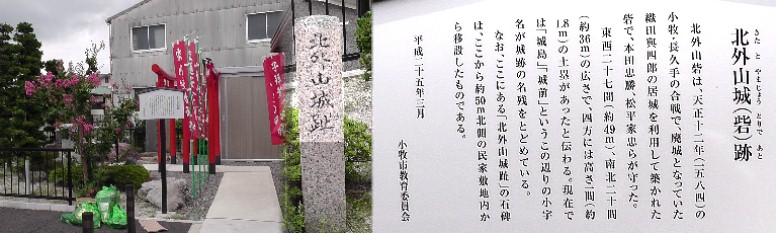 北外山城趾
北外山城（砦）跡
きた と やまじょう とりで あと
北外山砦は、天正十二年（一五八四）の
小牧・長久手の合戦で、廃城となっていた
織田與四郎の居城を利用して築かれた
砦で、本田忠勝、松平家忠らが守った。
東西二十七間（約49m）、南北二十間
（約36m）の広さで、四方には高さ一間（約
1.8m）の土塁があったと伝わる。現在で
は「城島」「城前」というこの辺りの小字
名が城跡の名残をとどめている。
なお、ここにある「北外山城趾」の石碑
は、ここから約50m北側の民家敷地内か
ら移設したものである。
平成二十五年三月
小牧市教育委員会